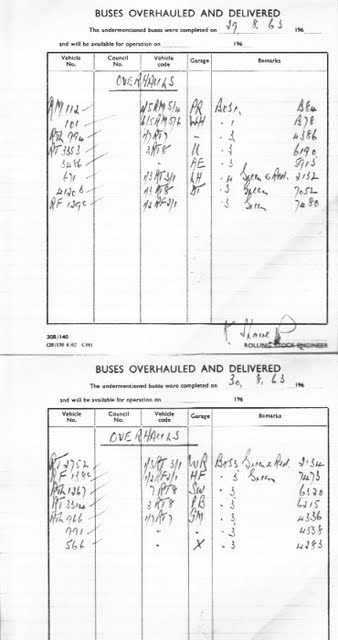 BUSES OVERHAULED AND DELIVERED
The undermentioned buses were completed on 29. 8. 63 196
and will be available for operation on 196
Vehicle No. Council No. Vehicle code Garage Remarks
OVERHAULS
RM 112 4/5RM5/4 PR B84
101 WH B78
794 1/7RT7 - . 3 4386
RT 3353 3RT8 U . 3 6190
3486 - AE . 3 5915
671 1/3RT3/1 LH Green & Red. 2132
4120 1/3 RT8 . 3 Green 7052
RF 2RF2/1 . 3 Green 7480
308/140
ROLLING STOCK ENGINEER
BUSES OVERHAULED AND DELIVERED
The undermentioned buses were completed on 30. 8. 63 196
and will be available for operation on 196
Vehicle No. Council No. Vehicle code Garage Remarks
OVERHAULS
RT 2752 1/3RT3/1 WR Bo53 Green & Red. 2134
RF HF . 5 Green 7473
1267 7RT8 SW . 3 6320
RT 3314 3RT8 PB . 3 6215
966 1/7RT7 GM . 3 4336
771 - - . 3 4338
566 - X . 3 4283